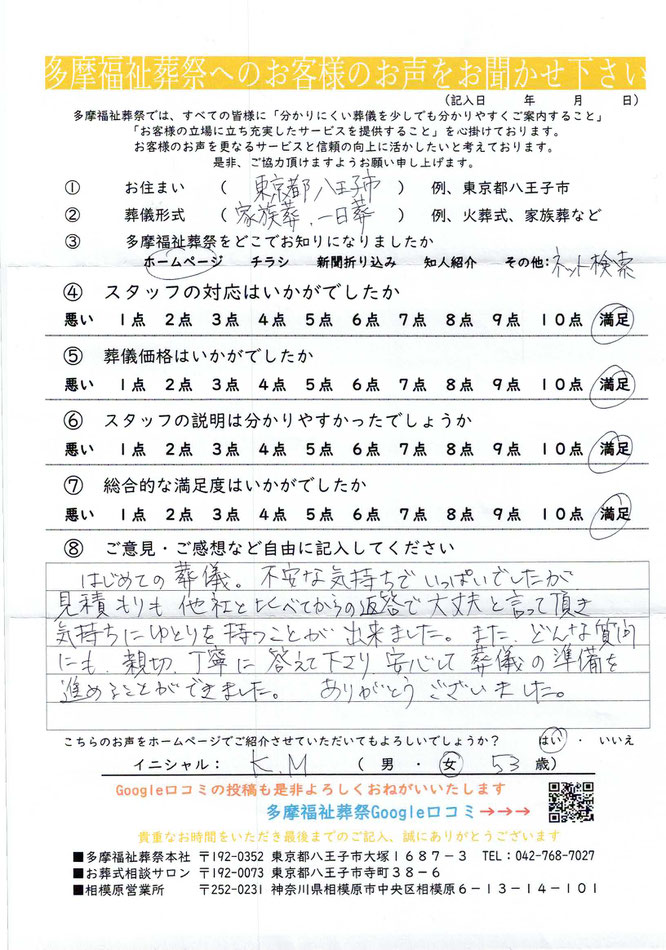 多摩福祉葬祭へのお客様のお声をお聞かせ下さい
(記入日　　年　　月　　日)
多摩福祉葬祭では、すべての皆様に「分かりにくい葬儀を少しでも分かりやすくご案内すること」
「お客様の立場に立ち充実したサービスを提供すること」を心掛けております。
お客様のお声を更なるサービスと信頼の向上に活かしたいと考えております。
是非、ご協力頂けますようお願い申し上げます。
① お住まい （ 東京都八王子市 ） 例、東京都八王子市
② 葬儀形式 （ 家族葬、一日葬 ） 例、火葬式、家族葬など
③ 多摩福祉葬祭をどこでお知りになりましたか
ホームページ チラシ 新聞折り込み 知人紹介 その他: ネット検索
④ スタッフの対応はいかがでしたか
悪い 1点 2点 3点 4点 5点 6点 7点 8点 9点 10点 満足
⑤ 葬儀価格はいかがでしたか
悪い 1点 2点 3点 4点 5点 6点 7点 8点 9点 10点 満足
⑥ スタッフの説明は分かりやすかったでしょうか
悪い 1点 2点 3点 4点 5点 6点 7点 8点 9点 10点 満足
⑦ 総合的な満足度はいかがでしたか
悪い 1点 2点 3点 4点 5点 6点 7点 8点 9点 10点 満足
⑧ ご意見・ご感想など自由に記入してください
はじめての葬儀。不安な気持ちでいっぱいでしたが
見積もりも他社と比べてからの返答で大丈夫と言って頂き
気持ちにゆとりを持つことが出来ました。また、どんな質問
にも、親切、丁寧に答えて下さり、安心して葬儀の準備を
進めることができました。 ありがとうございました。
こちらのお声をホームページでご紹介させていただいてもよろしいでしょうか？ はい ・ いいえ
イニシャル： K.M （ 男 ・ 女 53 歳）
Google口コミの投稿も是非よろしくおねがいいたします
多摩福祉葬祭Google口コミ→→→
貴重なお時間をいただき最後までのご記入、誠にありがとうございます
■多摩福祉葬祭本社 〒192-0352 東京都八王子市大塚1687-3 TEL：042-768-7027
■お葬式相談サロン 〒192-0073 東京都八王子市寺町38-6
■相模原営業所 〒252-0231 神奈川県相模原市中央区相模原6-13-14-101